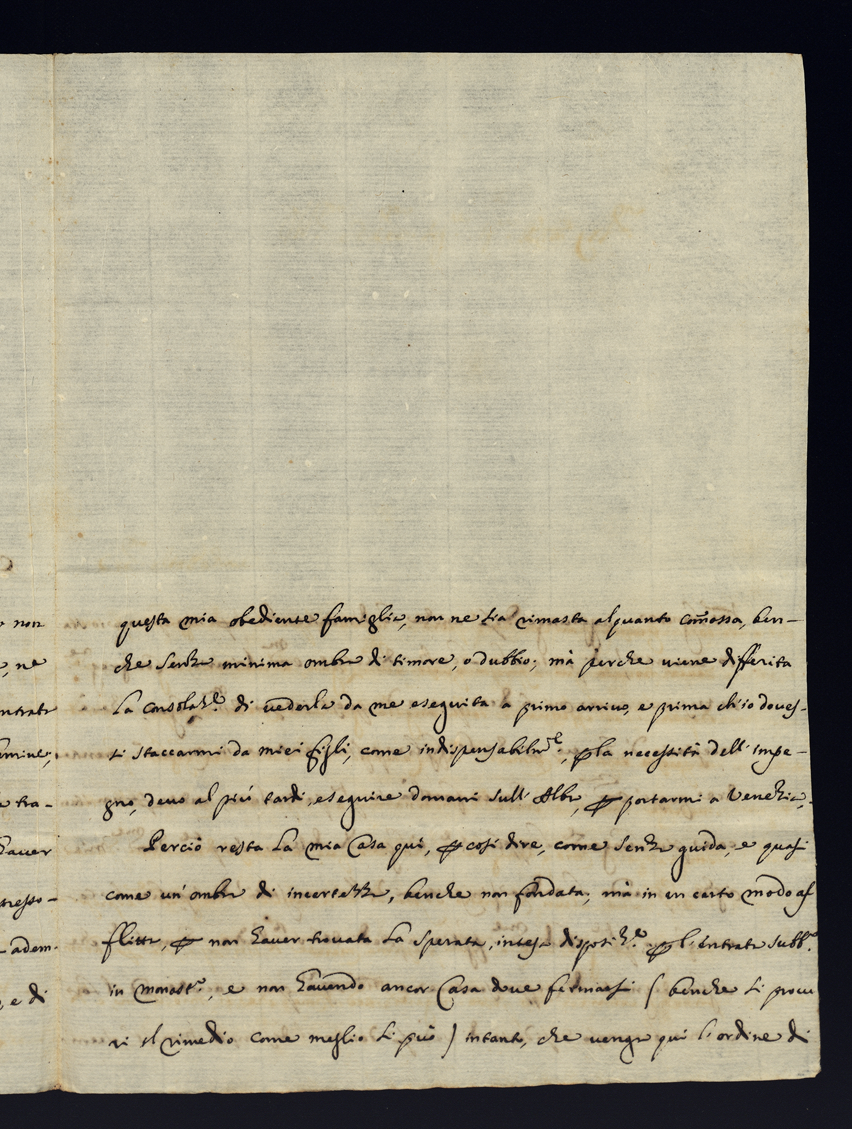 non
questa mia obediente famiglia, non ne sia rimasta alquanto com̃ossa, ben-
, ne
che senza minima ombra di timore, o dubbio; mà perche viene differita
ntrate
la consolaz.e di vederla da me eseguita a primo arrivo, e prima ch'io doves-
si staccarmi da miei figli, come indispensabilm.te, ꝑ la necessità dell'impe-
tra-
gno, devo al più tardi, eseguire domani sull'Alba, ꝑ portarmi a Venezia.
haver
Perciò resta la mia Casa qui, ꝑ così dire, come senza guida, e quasi
resso-
come un'ombra di incertezza, benche non fondata, mà in un certo modo af
adem-
flitta, ꝑ non haver trovata la sperata, intesa disposiz.e ꝑ l'entrata subb.a
, e di
in monast.o, e non havendo ancor Casa dove fermarsi ( benche si procu
ri il rimedio come meglio si può ) intanto, che venga qui l'ordine di